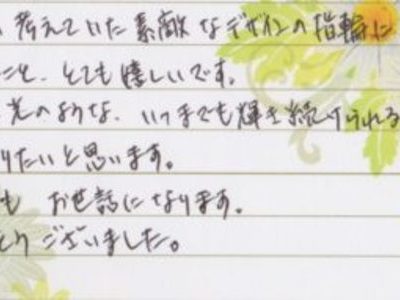 考えていた素敵なデザインの指輪に
こと、とても嬉しいです。
光のような、いつまでも輝き続けられる
りたいと思います。
も お世話になります。
とうございました。